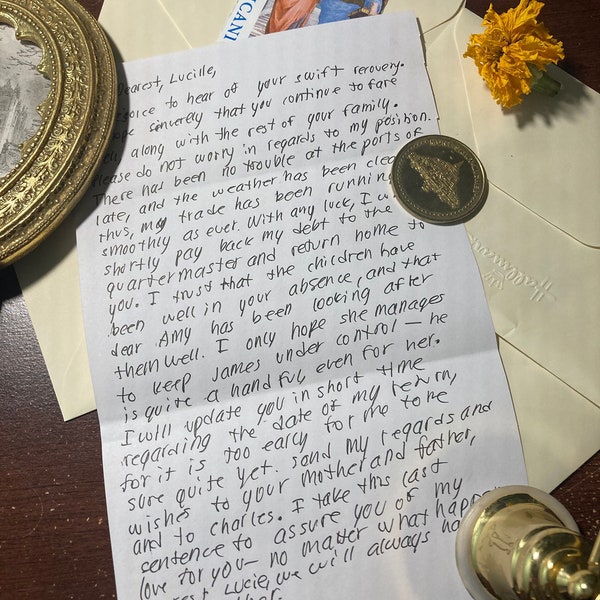 CANI
Dearest, Lucille,
to hear of your swift recovery.
sincerely that you continue to fare
along with the rest of your family.
Please do not worry in regards to my position.
There has been no trouble at the ports of
late, and the weather has been clear
thus, my trade has been running
smoothly as ever. With any luck, I
shortly pay back my debt to the
quartermaster and return home to
you. I trust that the children have
been well in your absence, and that
dear Amy has been looking after
them well. I only hope she manages
to keep James under control — he
is quite a handful, even for her.
I will update you in short time
regarding the date of my return,
for it is too early for me to be
sure quite yet. Send my regards and
wishes to your mother and father,
and to Charles. I take this last
sentence to assure you of my
love for you — no matter what
Lucie, we will always
Hallmark